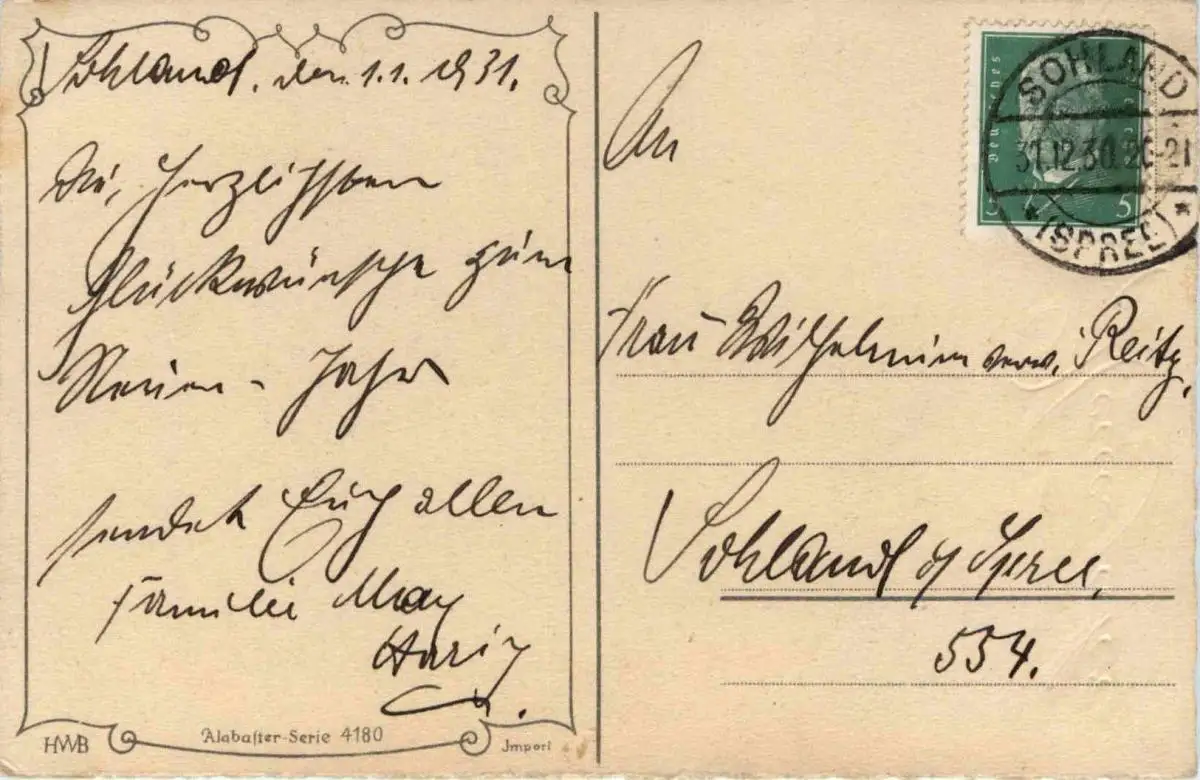 Sohland, den 1.1.1931.
Die herzlichsten
Glückwünsche zum
Neuen-Jahr
sendet Euch allen
Familie May
HWB
Alabaster-Serie 4180
Import
An
Frau Wilhelmine verw. Reitz,
Sohland a/ Spree,
554.
Deutsches
5
SOHLAND
31.12.30.20-21
* (SPREE) *